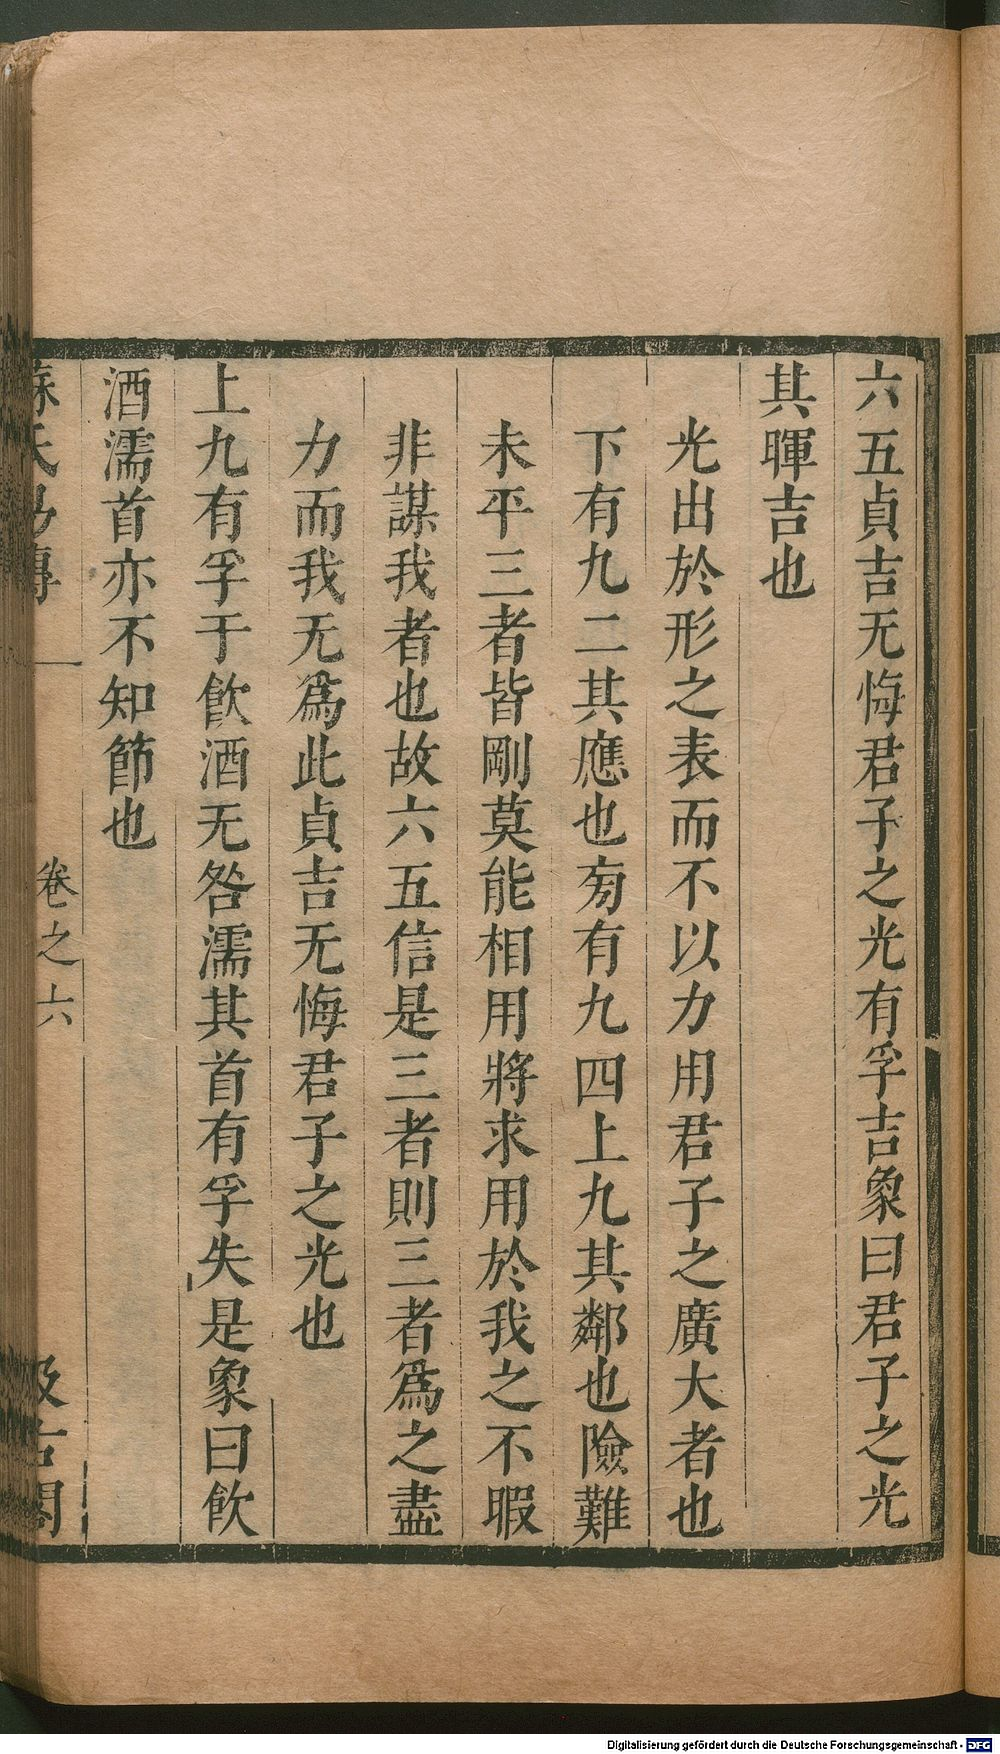 六五貞吉无悔君子之光有孚吉象曰君子之光
其暉吉也
光出於形之表而不以力用君子之廣大者也
下有九二其應也匊有九四上九其鄰也險難
未平三者皆剛莫能相用將求用於我之不暇
非謀我者也故六五信是三者則三者爲之盡
力而我无爲此貞吉无悔君子之光也
上九有孚于飮酒无咎濡其首有孚失是象曰飮
酒濡首亦不知節也
蘇氏易傳 卷之六 汲古閣
Digitalisierung gefördert durch die Deutsche Forschungsgemeinschaft - DFG